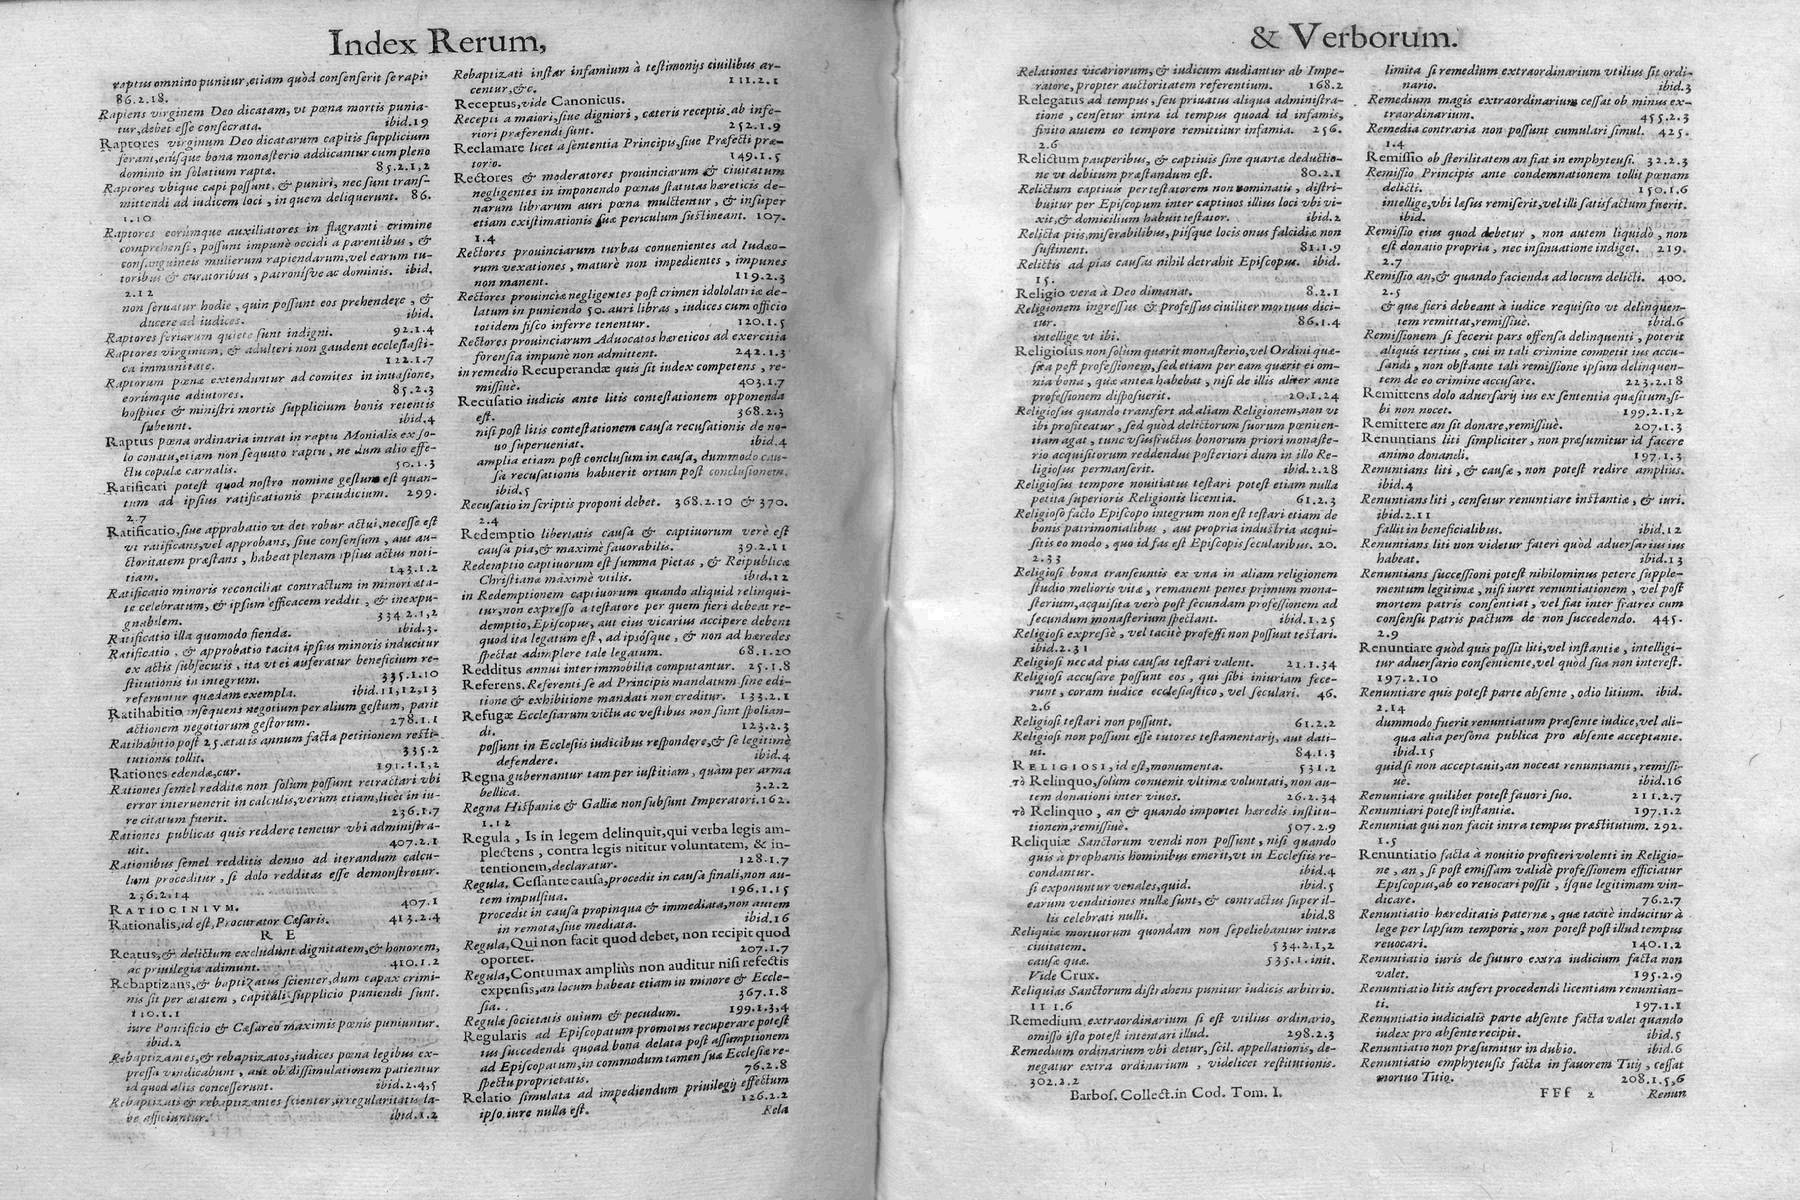 Index Rerum,
raptus omnino punitur, etiam quòd consenserit se rapi.
86.2.18.
Rapiens virginem Deo dicatam, vt pœna mortis punia-
tur, debet esse consecrata. ibid.19
Raptores virginum Deo dicatarum capitis supplicium
ferant, eiusque bona monasterio addicantur cum pleno
dominio in solatium raptæ. 85.2.1,2
Raptores vbique capi possunt, & puniri, nec sunt trans-
mittendi ad iudicem loci, in quem deliquerunt. 86.
1.10
Raptores eorúmque auxiliatores in flagranti crimine
comprehensi, possunt impunè occidi a parentibus, &
consanguineis mulierum rapiendarum, vel earum tu-
toribus & curatoribus, patronisve ac dominis. ibid.
2.12
non seruatur hodie, quin possunt eos prehendere, &
ducere ad iudices. ibid.
Raptores feriarum quiete sunt indigni. 92.1.4
Raptores virginum, & adulteri non gaudent ecclesiasti-
ca immunitate. 122.1.7
Raptorum pœnæ extenduntur ad comites in inuasione,
eorúmque adiutores. 85.2.3
hospites & ministri mortis supplicium bonis retentis
subeunt. ibid.4
Raptus pœna ordinaria intrat in raptu Monialis ex so-
lo conatu, etiam non sequuto raptu, ne dum alio effe-
ctu copulæ carnalis. 50.1.3
Ratificari potest quod nostro nomine gestum est quan-
tum ad ipsius ratificationis præiudicium. 299.
2.7
Ratificatio, siue approbatio vt det robur actui, necesse est
vt ratificans, vel approbans, siue consensum, aut au-
ctoritatem præstans, habeat plenam ipsius actus noti-
tiam. 143.1.2
Ratificatio minoris reconciliat contractum in minori æta-
te celebratum, & ipsum efficacem reddit, & inexpu-
gnabilem. 334.2.1,2
Ratificatio illa quomodo fienda. ibid.3.
Ratificatio, & approbatio tacita ipsius minoris inducitur
ex actis subsecutis, ita vt ei auferatur beneficium re-
stitutionis in integrum. 335.1.10
referuntur quædam exempla. ibid.11,12,13
Ratihabitio insequens negotium per alium gestum, parit
actionem negotiorum gestorum. 278.1.1
Ratihabitio post 25. ætatis annum facta petitionem resti-
tutionis tollit. 335.2
Rationes edendæ, cur. 191.1.1,2
Rationes semel redditæ non solùm possunt retractari vbi
error interuenerit in calculis, verum etiam, licèt in iu-
re citatum fuerit. 236.1.7
Rationes publicas quis reddere tenetur vbi administra-
uit. 407.2.1
Rationibus semel redditis denuo ad iterandum calcu-
lum proceditur, si dolo redditas esse demonstretur.
236.2.14
RATIOCINIVM. 407.1
Rationalis, id est, Procurator Cæsaris. 413.2.4
R E
Reatus, & delictum excludunt dignitatem, & honorem,
ac priuilegia adimunt. 410.1.2
Rebaptizans, & baptizatus scienter, dum capax crimi-
nis sit per ætatem, capitali supplicio puniendi sunt.
110.1.1
iure Pontificio & Cæsareo maximis pœnis puniuntur.
ibid.2
Rebaptizantes, & rebaptizatos, iudices pœna legibus ex-
pressa vindicabunt, aut ob dissimulationem patientur
id quod aliis concesserunt. ibid.2.4,5
Rebaptizati & rebaptizantes scienter, irregularitatis la-
be afficiuntur. ibid.1.2
Rebaptizati instar infamium à testimonijs ciuilibus ar-
centur, &c. 111.2.1
Receptus, vide Canonicus.
Recepti a maiori, siue digniori, cæteris receptis ab infe-
riori præferendi sunt. 252.1.9
Reclamare licet a sententia Principis, siue Præfecti præ-
torio. 149.1.5
Rectores & moderatores prouinciarum & ciuitatum
negligentes in imponendo pœnas statutas hæreticis de-
narum librarum auri pœna mulctentur, & insuper
etiam existimationis suæ periculum sustineant. 107.
1.4
Rectores prouinciarum turbas conuenientes ad Iudæo-
rum vexationes, maturè non impedientes, impunes
non manent. 119.2.3
Rectores prouinciæ negligentes post crimen idololatriæ de-
latum in puniendo 50. auri libras, iudices cum officio
totidem fisco inferre tenentur. 120.1.5
Rectores prouinciarum Aduocatos hæreticos ad exercitia
forensia impunè non admittent. 242.1.3
in remedio Recuperandæ quis sit iudex competens, re-
missiuè. 403.1.7
Recusatio iudicis ante litis contestationem opponenda
est. 368.2.3
nisi post litis contestationem causa recusationis de no-
uo superueniat. ibid.4
amplia etiam post conclusum in causa, dummodo cau-
sa recusationis habuerit ortum post conclusionem.
ibid.5
Recusatio in scriptis proponi debet. 368.2.10 & 370.
2.4
Redemptio libertatis causa & captiuorum verè est
causa pia, & maximè fauorabilis. 39.2.11
Redemptio captiuorum est summa pietas, & Reipublicæ
Christianæ maximè vtilis. ibid.12
in Redemptionem captiuorum quando aliquid relinqui-
tur, non expresso a testatore per quem fieri debeat re-
demptio, Episcopus, aut eius vicarius accipere debent
quod ita legatum est, ad ipsósque, & non ad hæredes
spectat adimplere tale legatum. 68.1.20
Redditus annui inter immobilia computantur. 25.1.8
Referens. Referenti se ad Principis mandatum sine edi-
tione & exhibitione mandati non creditur. 133.2.1
Refugæ Ecclesiarum victu ac vestibus non sunt spolian-
di. 123.2.3
possunt in Ecclesiis iudicibus respondere, & se legitimè
defendere. ibid.4
Regna gubernantur tam per iustitiam, quàm per arma
bellica. 3.2.2
Regna Hispaniæ & Galliæ non subsunt Imperatori. 162.
1.12
Regula, Is in legem delinquit, qui verba legis am-
plectens, contra legis nititur voluntatem, & in-
tentionem, declaratur. 128.1.7
Regula, Cessante causa, procedit in causa finali, non au-
tem impulsiua. 196.1.15
procedit in causa propinqua & immediata, non autem
in remota, siue mediata. ibid.16
Regula, Qui non facit quod debet, non recipit quod
oportet. 207.1.7
Regula, Contumax ampliùs non auditur nisi refectis
expensis, an locum habeat etiam in minore & Eccle-
sia. 367.1.8
Regulæ societatis ouium & pecudum. 199.1.3,4
Regularis ad Episcopatum promotus recuperare potest
ius succedendi quoad bona delata post assumptionem
ad Episcopatum, in commodum tamen suæ Ecclesiæ re-
spectu proprietatis. 76.2.8
Relatio simulata ad impediendum priuilegij effectum
ipso iure nulla est. 126.2.2
Rela
& Verborum.
Relationes vicariorum, & iudicum audiantur ab Impe-
ratore, propter auctoritatem referentium. 168.2
Relegatus ad tempus, seu priuatus aliqua administra-
tione, censetur intra id tempus quoad id infamis,
finito autem eo tempore remittitur infamia. 256.
2.6
Relictum pauperibus, & captiuis sine quartæ deductio-
ne vt debitum præstandum est. 80.2.1
Relictum captiuis per testatorem non nominatis, distri-
buitur per Episcopum inter captiuos illius loci vbi vi-
xit, & domicilium habuit testator. ibid.2
Relicta piis, miserabilibus, piisque locis onus falcidiæ non
sustinent. 81.1.9
Relictis ad pias causas nihil detrahit Episcopus. ibid.
15.
Religio vera à Deo dimanat. 8.2.1
Religionem ingressus & professus ciuiliter mortuus dici-
tur. 86.1.4
intellige vt ibi.
Religiosus non solùm quærit monasterio, vel Ordini quæ-
sita post professionem, sed etiam per eam quærit ei om-
nia bona, quæ antea habebat, nisi de illis aliter ante
professionem disposuerit. 20.1.24
Religiosus quando transfert ad aliam Religionem, non vt
ibi profiteatur, sed quòd delictorum suorum pœniten-
tiam agat, tunc vsusfructus bonorum priori monaste-
rio acquisitorum reddendus posteriori dum in illo Re-
ligiosus permanserit. ibid.2.28
Religiosus tempore nouitiatus testari potest etiam nulla
petita superioris Religionis licentia. 61.2.3
Religioso facto Episcopo integrum non est testari etiam de
bonis patrimonialibus, aut propria industria acqui-
sitis eo modo, quo id fas est Episcopis secularibus. 20.
2.33
Religiosi bona transeuntis ex vna in aliam religionem
studio melioris vitæ, remanent penes primum mona-
sterium, acquisita verò post secundam professionem ad
secundum monasterium spectant. ibid.1.25
Religiosi expresiè, vel tacitè professi non possunt testari.
ibid.2.31
Religiosi nec ad pias causas testari valent. 21.1.34
Religiosi accusare possunt eos, qui sibi iniuriam fece-
runt, coram iudice ecclesiastico, vel seculari. 46.
2.6
Religiosi testari non possunt. 61.2.2
Religiosi non possunt esse tutores testamentarij, aut dati-
ui. 84.1.3
RELIGIOSI, id est, monumenta. 531.2
τὸ Relinquo, solùm conuenit vltimæ voluntati, non au-
tem donationi inter viuos. 26.2.34
τὸ Relinquo, an & quando importet hæredis institu-
tionem, remissiuè. 507.2.9
Reliquiæ Sanctorum vendi non possunt, nisi quando
quis à prophanis hominibus emerit, vt in Ecclesiis re-
condantur. ibid.4
si exponuntur venales, quid. ibid.5
earum venditiones nullæ sunt, & contractus super il-
lis celebrati nulli. ibid.8
Reliquiæ mortuorum quondam non sepeliebantur intra
ciuitatem. 534.2.1,2
causæ quæ. 535.1.init.
Vide Crux.
Reliquias Sanctorum distrahens punitur iudicis arbitrio.
111.6
Remedium extraordinarium si est vtilius ordinario,
omisso isto potest intentari illud. 298.2.3
Remedium ordinarium vbi detur, scil. appellationis, de-
negatur extra ordinarium, videlicet restitutionis.
302.2.2
Barbos. Collect. in Cod. Tom. I.
limita si remedium extraordinarium vtilius sit ordi-
nario. ibid.3
Remedium magis extraordinarium cessat ob minus ex-
traordinarium. 455.2.3
Remedia contraria non possunt cumulari simul. 425.
1.4
Remissio ob sterilitatem an fiat in emphyteusi. 32.2.3
Remissio Principis ante condemnationem tollit pœnam
delicti. 150.1.6
intellige, vbi læsus remiserit, vel illi satisfactum fuerit.
ibid.
Remissio eius quod debetur, non autem liquidò, non
est donatio propria, nec insinuatione indiget. 219.
2.7
Remissio an, & quando facienda ad locum delicti. 400.
2.5
& quæ fieri debeant à iudice requisito vt delinquen-
tem remittat, remissiuè. ibid.6
Remissionem si fecerit pars offensa delinquenti, poterit
aliquis tertius, cui in tali crimine competit ius accu-
sandi, non obstante tali remissione ipsum delinquen-
tem de eo crimine accusare. 223.2.18
Remittens dolo aduersarij ius ex sententia quæsitum, si-
bi non nocet. 199.2.1,2
Remittere an sit donare, remissiuè. 207.1.3
Renuntians liti simpliciter, non præsumitur id facere
animo donandi. 197.1.3
Renuntians liti, & causæ, non potest redire amplius.
ibid.4
Renuntians liti, censetur renuntiare instantiæ, & iuri.
ibid.2.11
fallit in beneficialibus. ibid.12
Renuntians liti non videtur fateri quòd aduersarius ius
habeat. ibid.13
Renuntians successioni potest nihilominus petere supple-
mentum legitimæ, nisi iuret renuntiationem, vel post
mortem patris consentiat, vel fiat inter fratres cum
consensu patris pactum de non succedendo. 445.
2.9
Renuntiare quòd quis possit liti, vel instantiæ, intelligi-
tur aduersario consentiente, vel quòd sua non interest.
197.2.10
Renuntiare quis potest parte absente, odio litium. ibid.
2.14
dummodo fuerit renuntiatum præsente iudice, vel ali-
qua alia persona publica pro absente acceptante.
ibid.15
quid si non acceptauit, an noceat renuntianti, remissi-
uè. ibid.16
Renuntiare quilibet potest fauori suo. 211.2.7
Renuntiari potest instantiæ. 197.1.2
Renuntiat qui non facit intra tempus præstitutum. 292.
1.5
Renuntiatio facta à nouitio profiteri volenti in Religio-
ne, an, si post emissam validè professionem efficiatur
Episcopus, ab eo reuocari possit, isque legitimam vin-
dicare. 76.2.7
Renuntiatio hæreditatis paternæ, quæ tacitè inducitur à
lege per lapsum temporis, non potest post illud tempus
reuocari. 140.1.2
Renuntiatio iuris de futuro extra iudicium facta non
valet. 195.2.9
Renuntiatio litis aufert procedendi licentiam renuntian-
ti. 197.1.1
Renuntiatio iudicialis parte absente facta valet quando
iudex pro absente recipit. ibid.5
Renuntiatio non præsumitur in dubio. ibid.6
Renuntiatio emphyteusis facta in fauorem Titij, cessat
mortuo Titio. 208.1.5,6
FFf 2 Renun